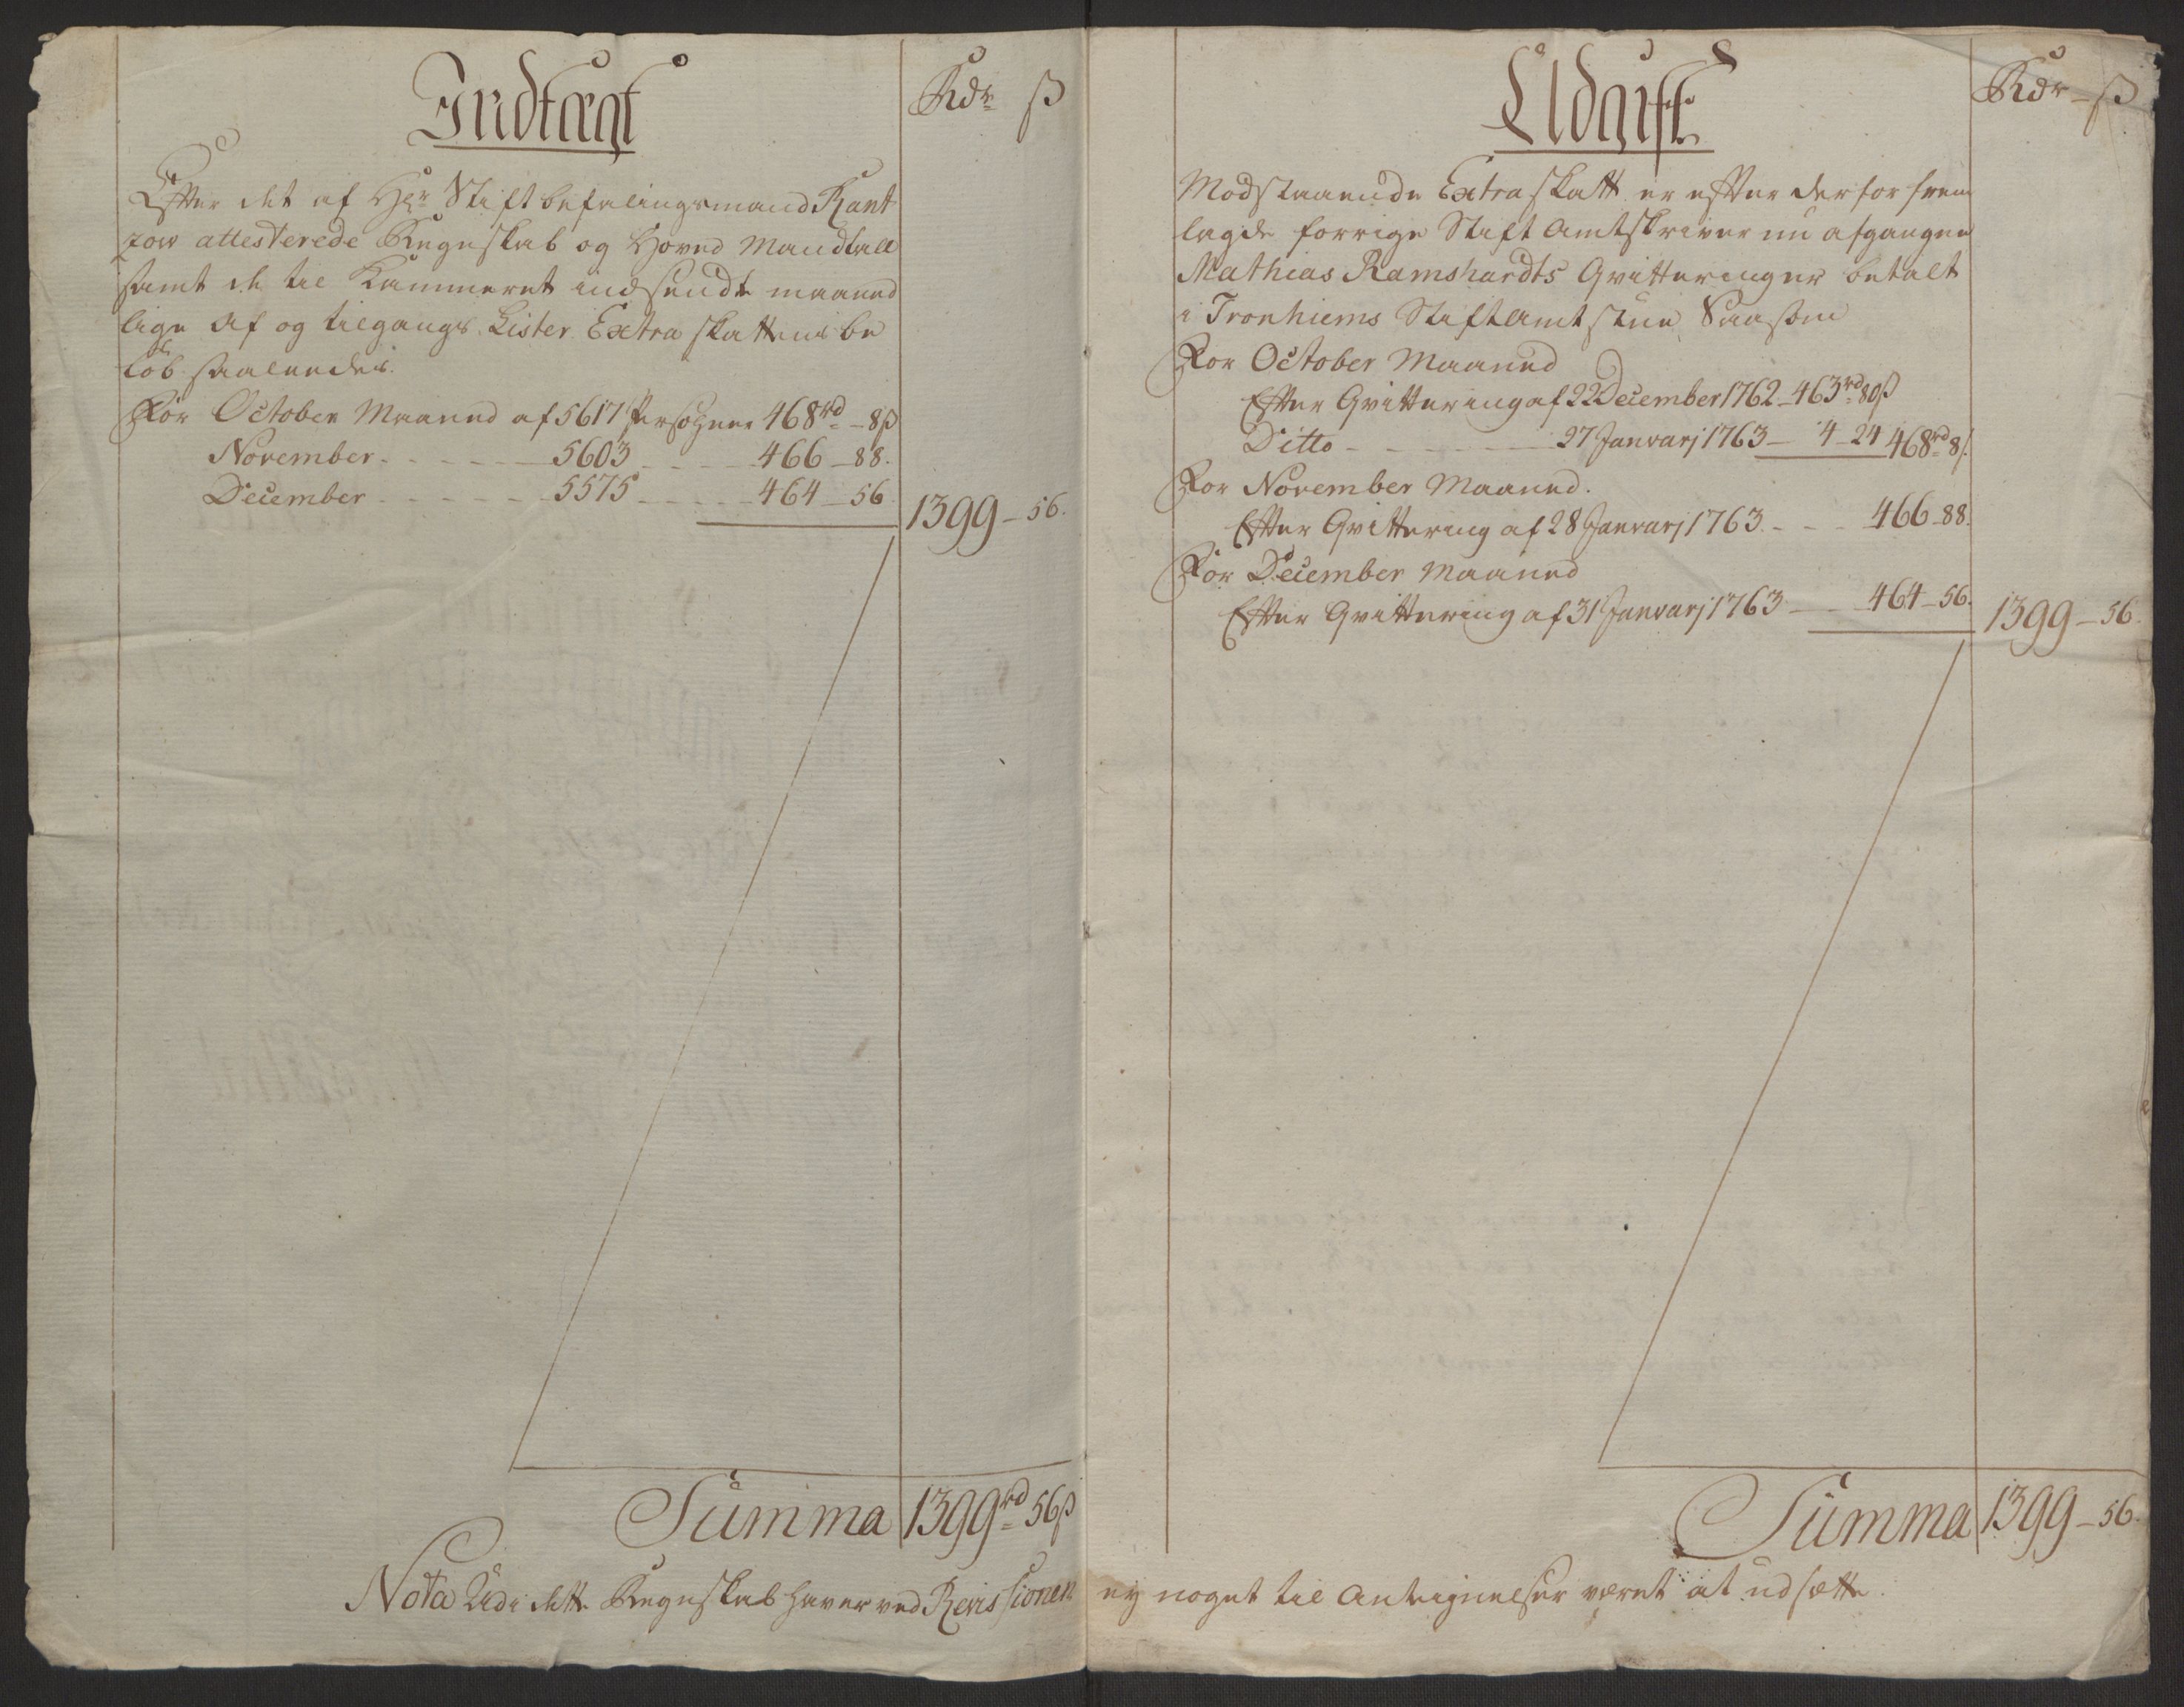 Indtægt
Rdr ß
Efter det af Hr Stiftbefalingsmand Rant
zow attesterede Regnskab og Hoved Mandtall
samt de til Kammeret indsendte maaned
lige Af og tilgangs Lister Extra skattens be
løb saaledes.
For October Maaned af 5617 Persohner 468rd - 8ß
November - - - 5603 - - 466 - 88.
December - - - 5575 - - 464 - 56
1399 - 56.
Summa 1399rd 56ß
Udgift
Rdr - ß
Modstaaende Extra skatt er efter derfor frem
lagde forrige Stift Amtskriver nu afgangne
Mathias Ramshardts Qvitteringer betalt
i Tronhiems Stiftamtstue Saasom
For October Maaned
Efter Qvittering af 22 December 1762 - 463rd 80ß
Ditto - - - 27 Janvarj 1763 - 4 - 24 468rd 8ß.
For November Maaned.
Efter Qvittering af 28 Janvarj 1763 - - - 466 - 88.
For December Maaned
Efter Qvittering af 31 Janvarj 1763 - - 464 - 56.
1399 - 56.
Summa 1399 - 56.
Nota Udi dette Regnskab haver ved Revissionen ey noget til Antegnelser været at udsætte.